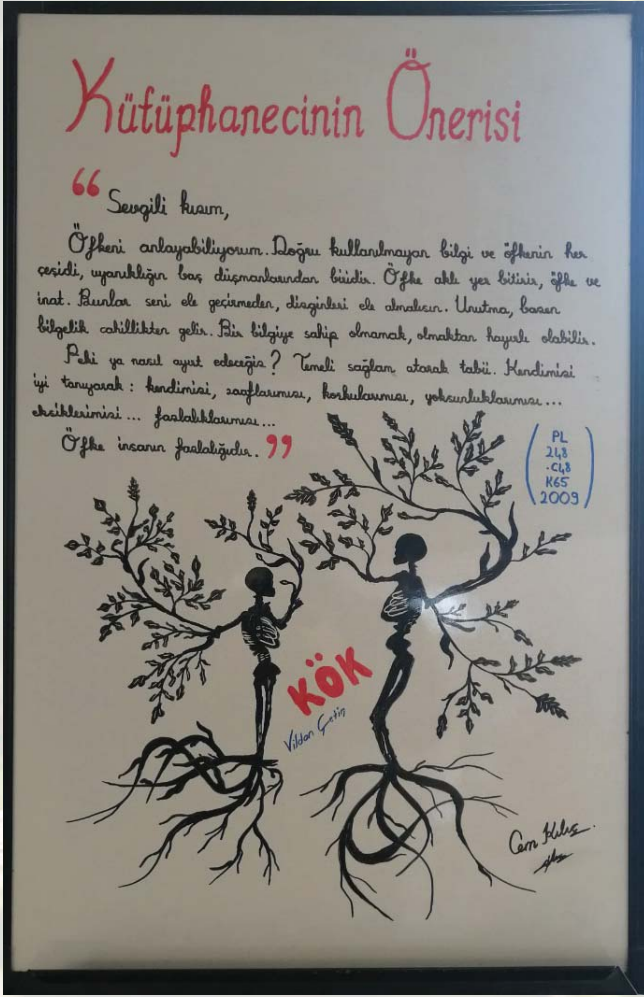 Kütüphanecinin Önerisi
“ Sevgili kızım,
Öfkeni anlayabiliyorum. Doğru kullanılmayan bilgi ve öfkenin her
çeşidi, uyanıklığın baş düşmanlarından biridir. Öfke aklı yer bitirir, öfke ve
inat. Bunlar seni ele geçirmeden, dizginleri ele almalısın. Unutma, bazen
bilgelik cahillikten gelir. Bir bilgiye sahip olmamak, olmaktan hayırlı olabilir.
Peki ya nasıl ayırt edeceğiz? Temeli sağlam atarak tabii. Kendimizi
iyi tanıyarak: kendimizi, zaaflarımızı, korkularımızı, yoksunluklarımızı...
eksiklerimizi... fazlalıklarımızı...
Öfke insanın fazlalığıdır. ”
PL
248
.C48
K65
2009
KÖK
Vildan Çetin
Cem Kılıç